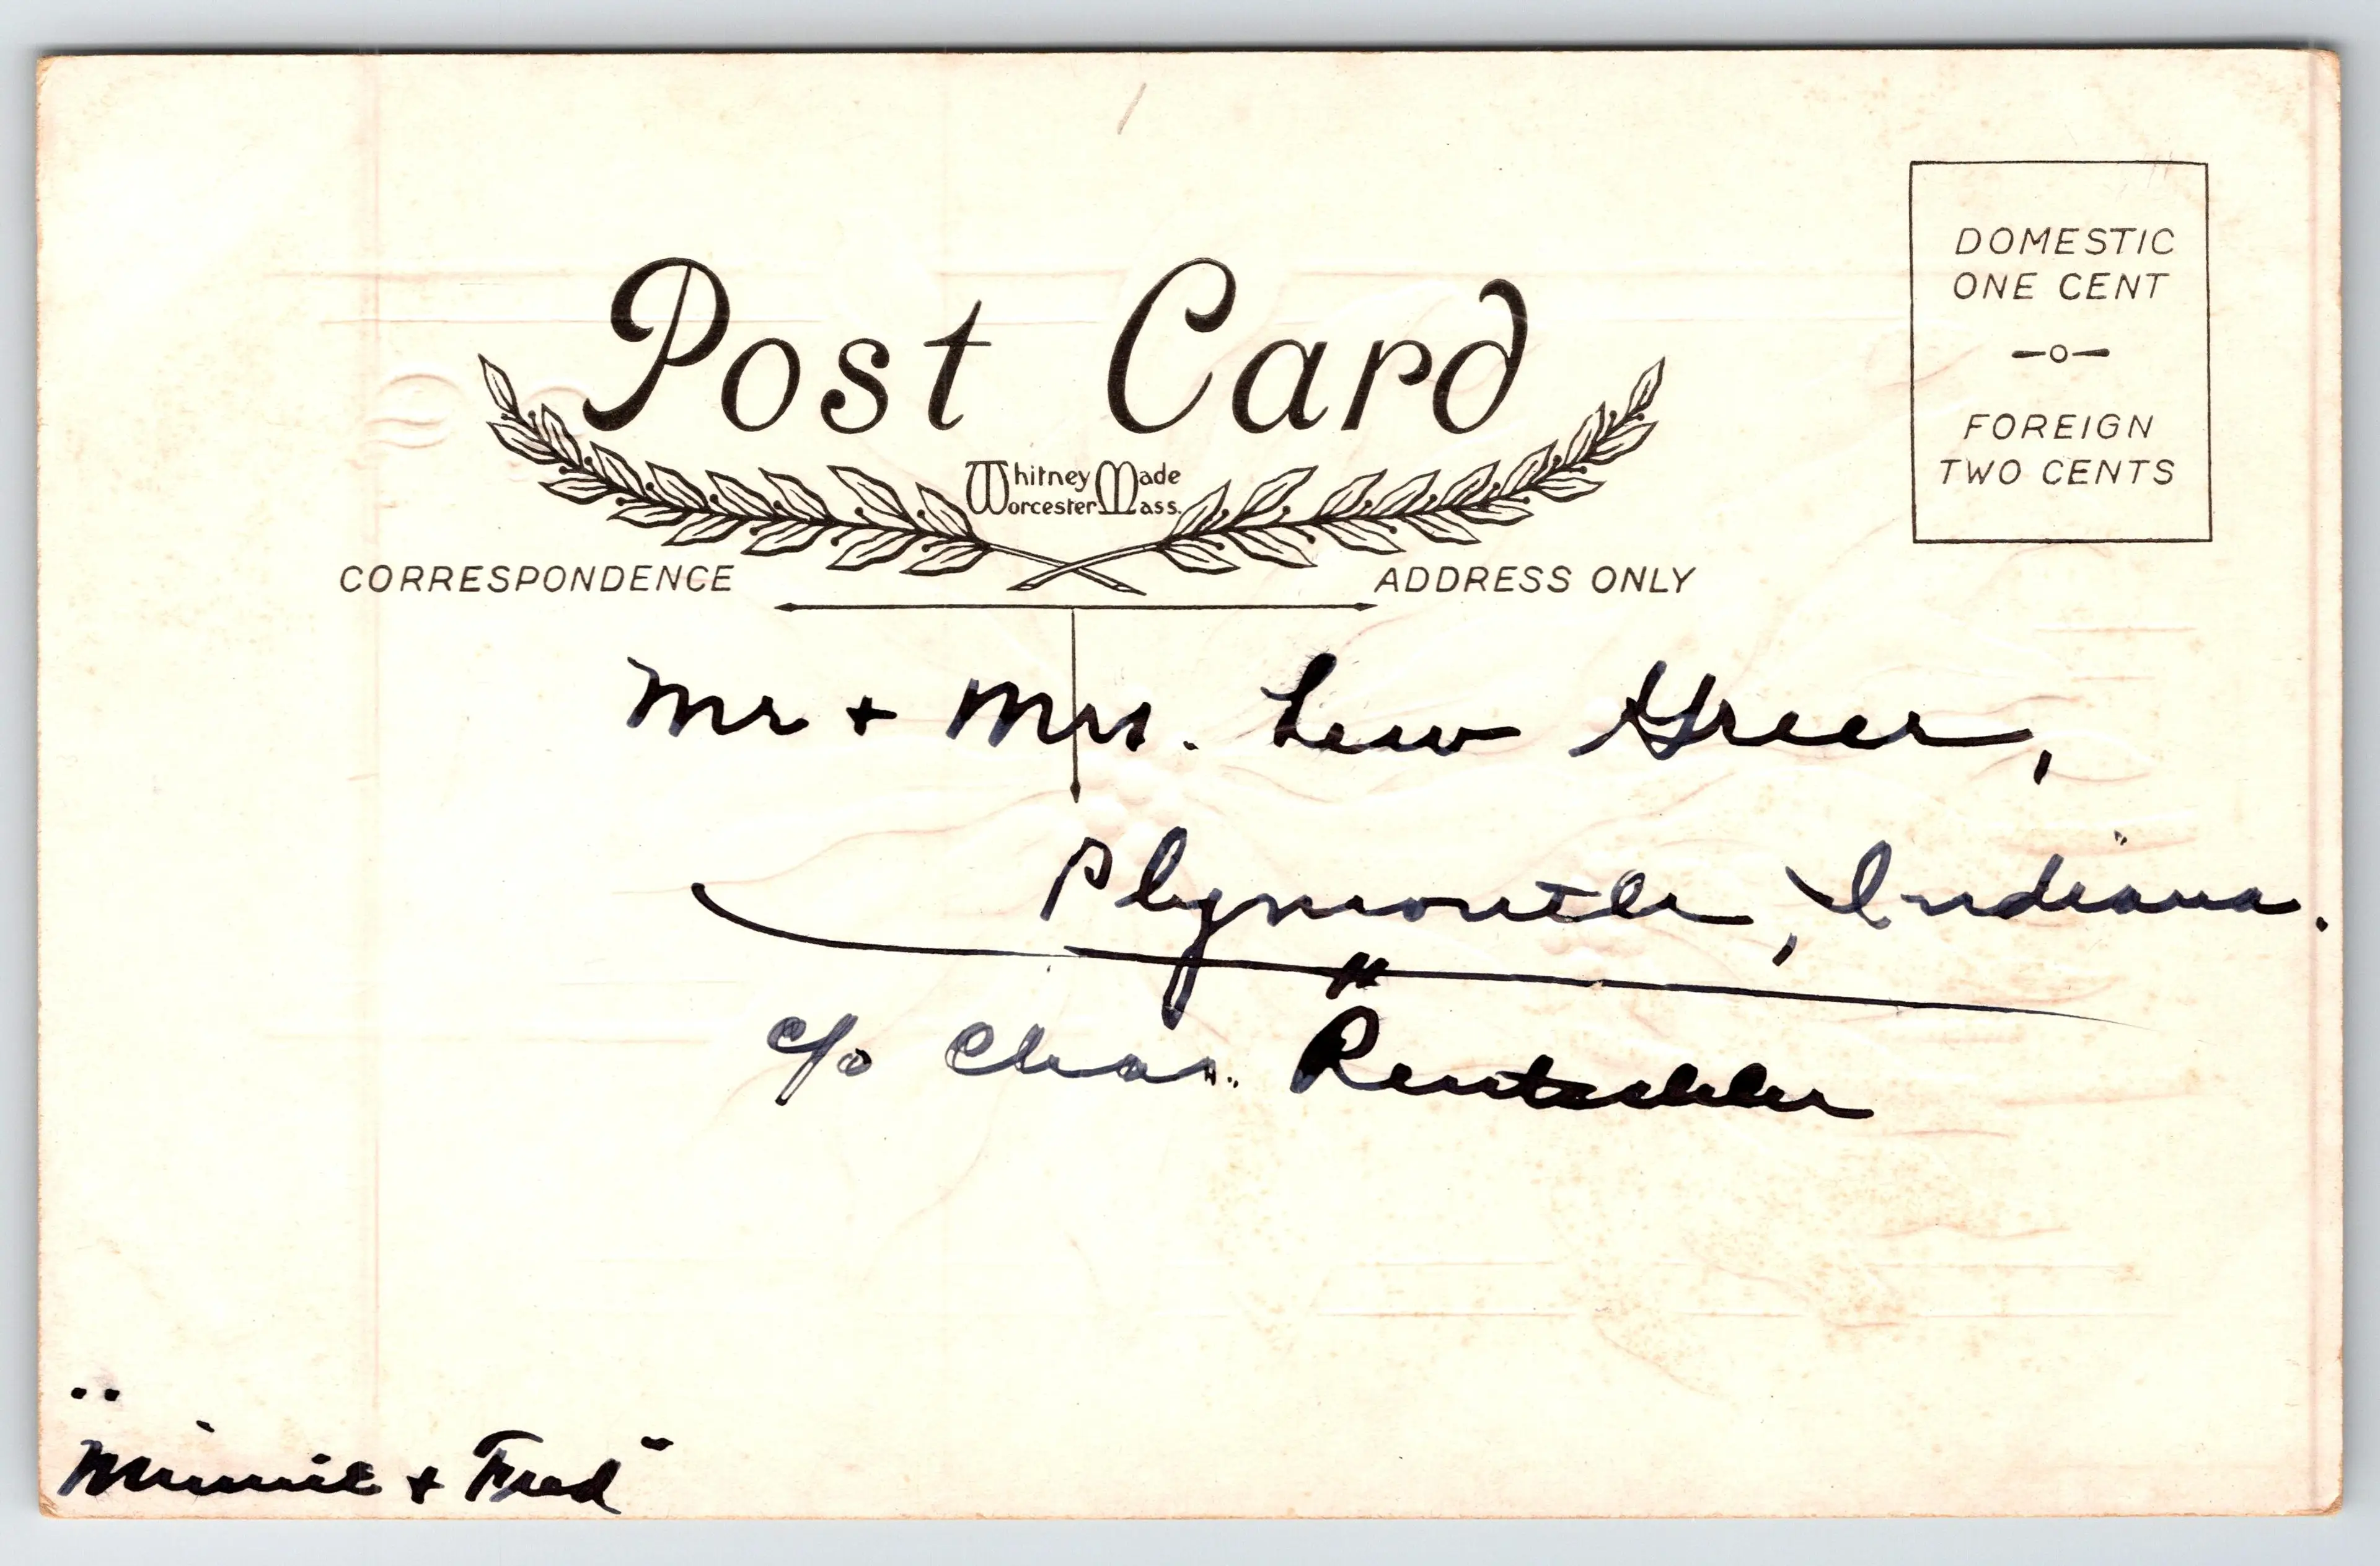 Post Card
Whitney Made
Worcester Mass.
DOMESTIC
ONE CENT
FOREIGN
TWO CENTS
CORRESPONDENCE
ADDRESS ONLY
Mr + Mrs. Lew Greer,
Plymouth, Indiana.
"
c/o Chas. Rentschler
"Minnie + Fred"